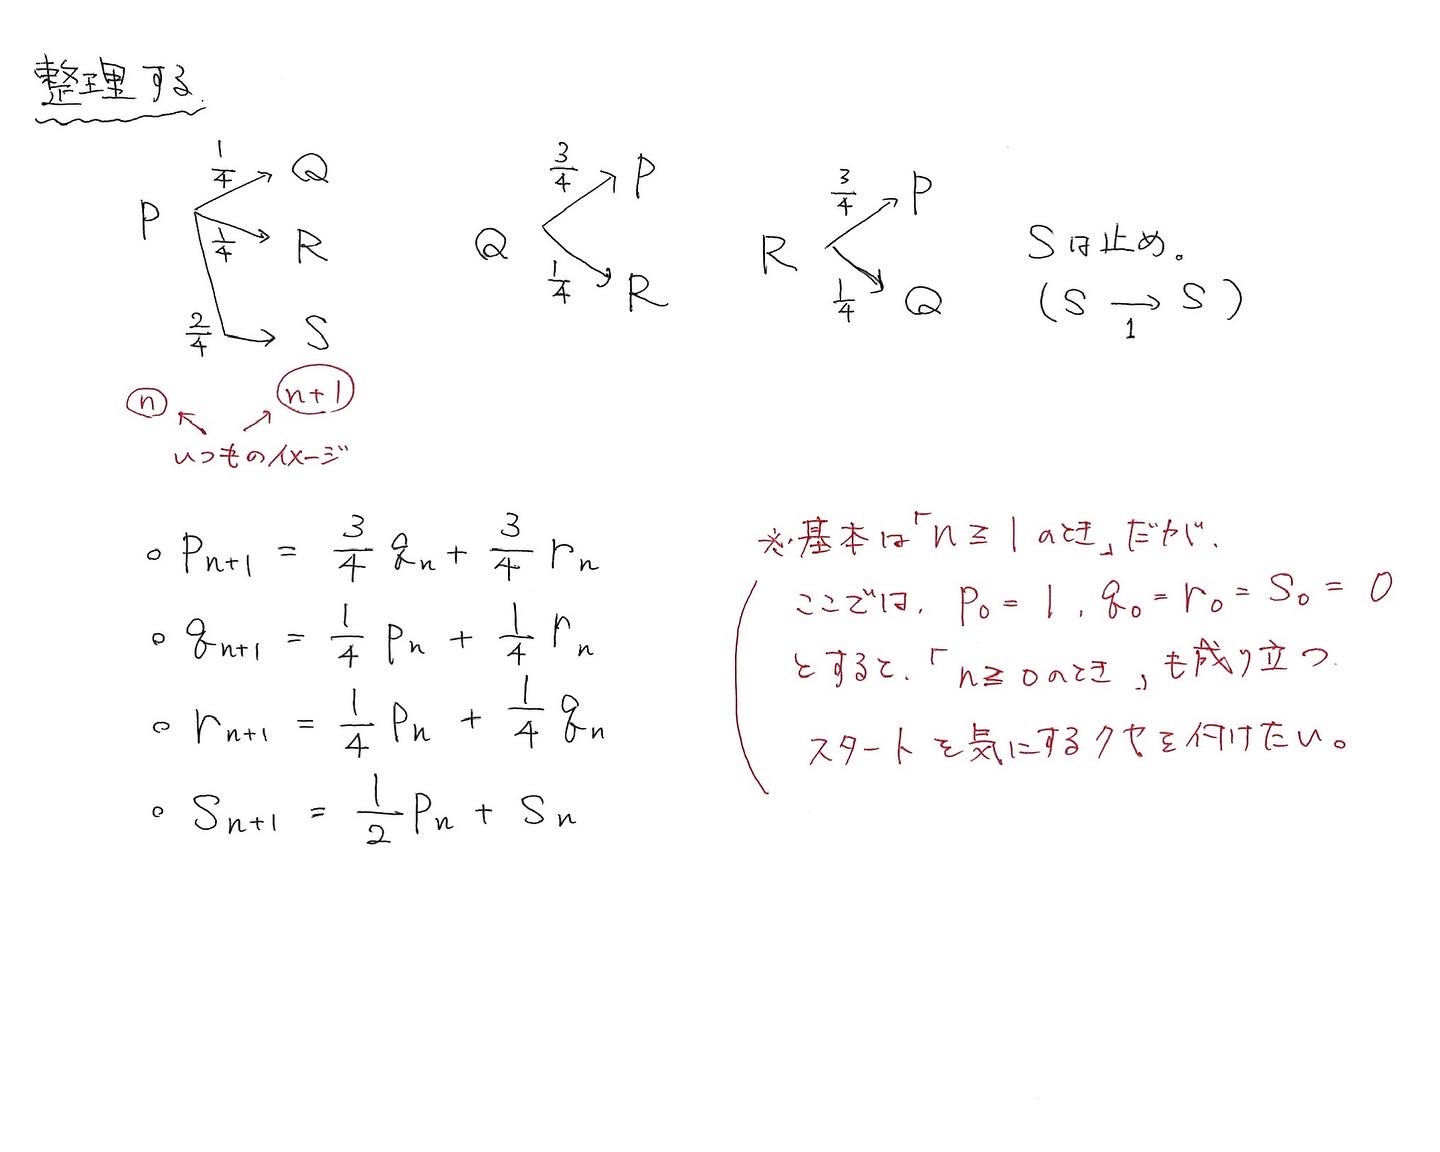 整理する.
P 1/4 → Q
1/4 → R
2/4 → S
Q 3/4 → P
1/4 → R
R 3/4 → P
1/4 → Q
Sは止め。
(S →1 S)
n n+1
いつものイメージ
○ pn+1 = 3/4 qn + 3/4 rn
○ qn+1 = 1/4 pn + 1/4 rn
○ rn+1 = 1/4 pn + 1/4 qn
○ Sn+1 = 1/2 pn + Sn
※基本は「n≧1のとき」だが、
ここでは、p0 = 1, q0 = r0 = S0 = 0
とすると、「n≧0のとき」も成り立つ.
スタートを気にするクセを付けたい。